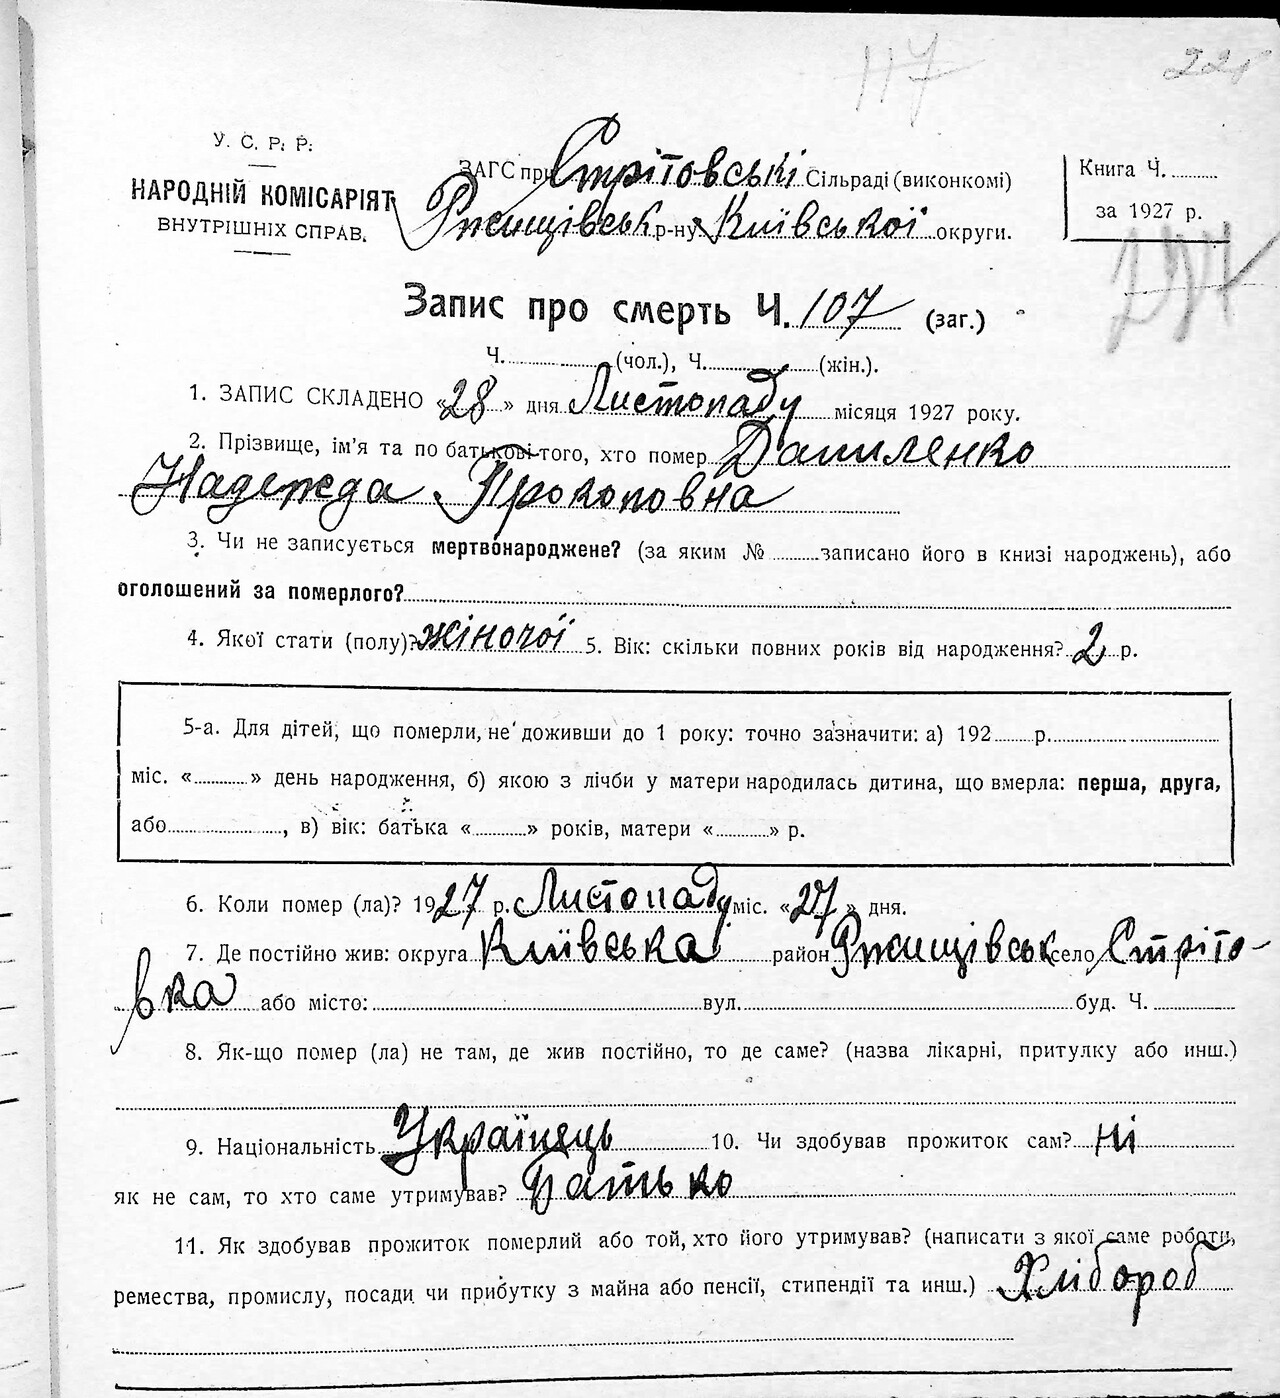 117
22
У. С. Р. Р.
НАРОДНІЙ КОМІСАРІЯТ
ВНУТРІШНІХ СПРАВ.
ЗАГС при Стрітовські Сільраді (виконкомі)
Ржищівськ р-ну Київської округи.
Книга Ч.
за 1927 р.
Запис про смерть Ч. 107 (заг.)
Ч. (чол.), Ч. (жін.).
1. ЗАПИС СКЛАДЕНО «28» дня Листопаду місяця 1927 року.
2. Прізвище, ім'я та по батькові того, хто помер Даниленко
Надежда Прокоповна
3. Чи не записується мертвонароджене? (за яким № записано його в книзі народжень), або
оголошений за померлого?
4. Якої стати (полу)? жіночої 5. Вік: скільки повних років від народження? 2 р.
5-а. Для дітей, що померли, не доживши до 1 року: точно зазначити: а) 192 р.
міс. « » день народження, б) якою з лічби у матери народилась дитина, що вмерла: перша, друга,
або , в) вік: батька « » років, матери « » р.
6. Коли помер (ла)? 1927 р. Листопаду міс. «27» дня.
7. Де постійно жив: округа Київська район Ржищівськ село Стріто-
вка або місто: вул. буд. Ч.
8. Як-що помер (ла) не там, де жив постійно, то де саме? (назва лікарні, притулку або инш.)
9. Національність Українець 10. Чи здобував прожиток сам? Ні
як не сам, то хто саме утримував? Батько
11. Як здобував прожиток померлий або той, хто його утримував? (написати з якої саме роботи,
ремества, промислу, посади чи прибутку з майна або пенсії, стипендії та инш.) Хлібороб